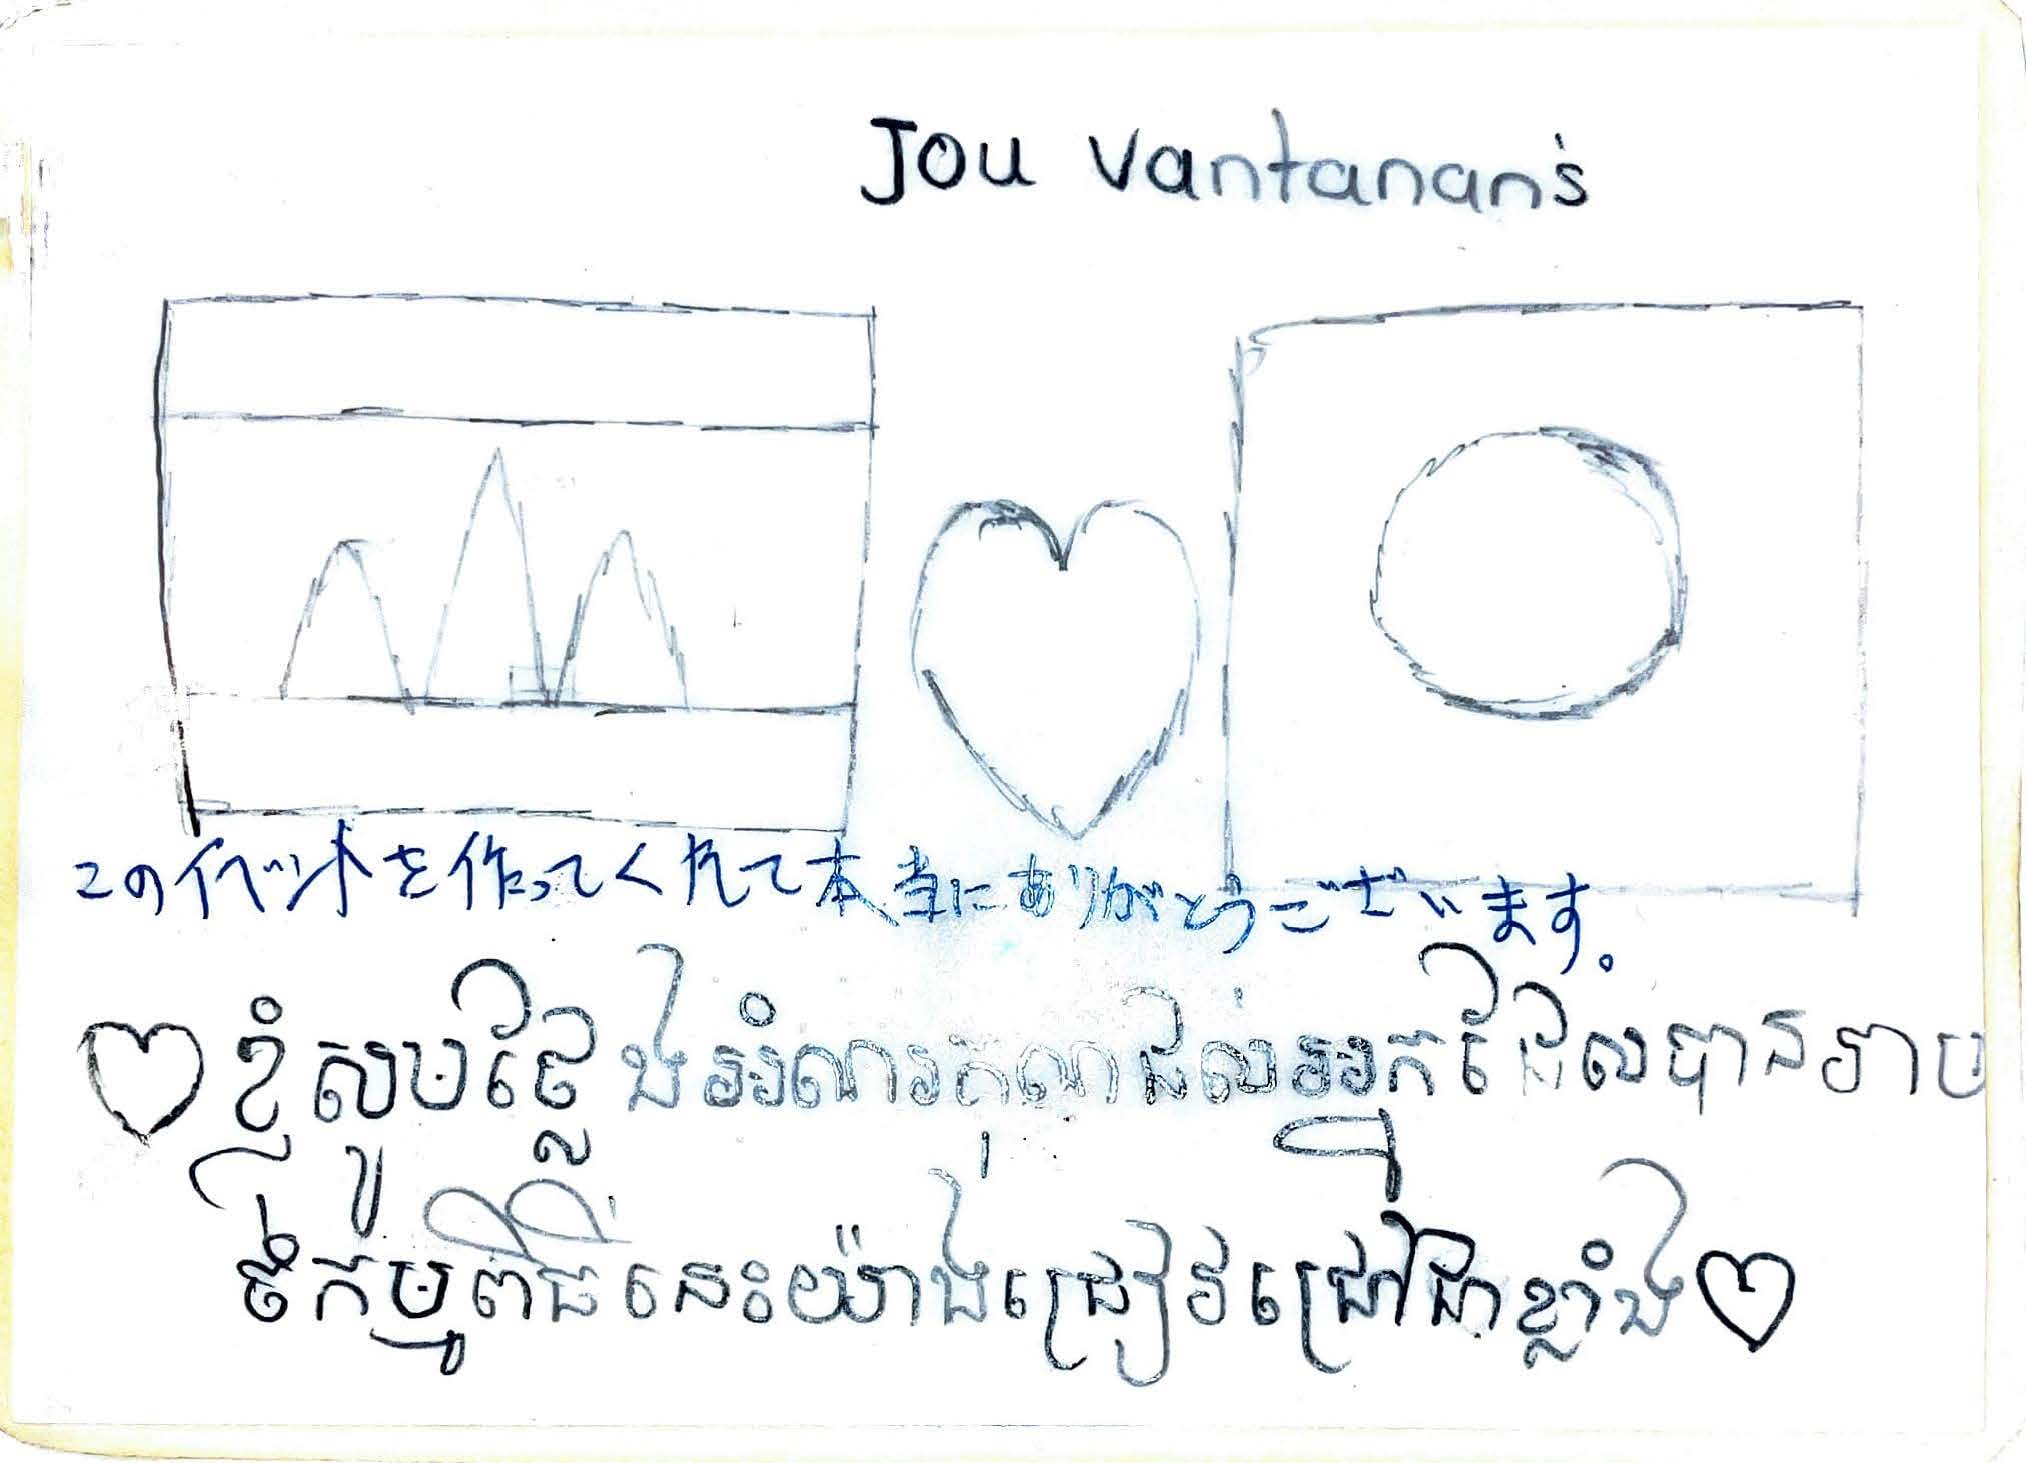 Jou Vantanan's
このイベントを作ってくれて本当にありがとうございます。
ខ្ញុំសូមថ្លែងអំណរគុណដល់អ្នកដែលបានរៀប
ចំកម្មពិធីនេះយ៉ាងជ្រៀវជ្រៅជាខ្លាំង